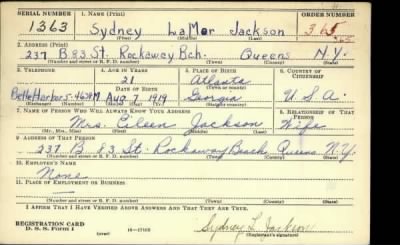 SERIAL NUMBER 1. NAME (Print) ORDER NUMBER
1363 Sydney LaMar Jackson 365
(First) (Middle) (Last)
2. ADDRESS (Print)
237 B 83 St. Rockaway Bch. Queens N.Y.
(Number and street or R. F. D. number) (Town) (County) (State)
3. TELEPHONE 4. AGE IN YEARS 5. PLACE OF BIRTH 6. COUNTRY OF CITIZENSHIP
21 Atlanta
DATE OF BIRTH (Town or county)
Belle Harbor 5-4639M Aug 7 1919 Georgia U.S.A.
(Exchange) (Number) (Mo.) (Day) (Yr.) (State or country)
7. NAME OF PERSON WHO WILL ALWAYS KNOW YOUR ADDRESS 8. RELATIONSHIP OF THAT PERSON
Mrs. Eileen Jackson Wife
(Mr., Mrs., Miss) (First) (Middle) (Last)
9. ADDRESS OF THAT PERSON
237 B. 83 St. Rockaway Beach Queens N.Y.
(Number and street or R. F. D. number) (Town) (County) (State)
10. EMPLOYER'S NAME
None
11. PLACE OF EMPLOYMENT OR BUSINESS
(Number and street or R. F. D. number) (Town) (County) (State)
I AFFIRM THAT I HAVE VERIFIED ABOVE ANSWERS AND THAT THEY ARE TRUE.
REGISTRATION CARD
D. S. S. Form 1 (over) 16-17105 Sydney L. Jackson
(Registrant's signature)